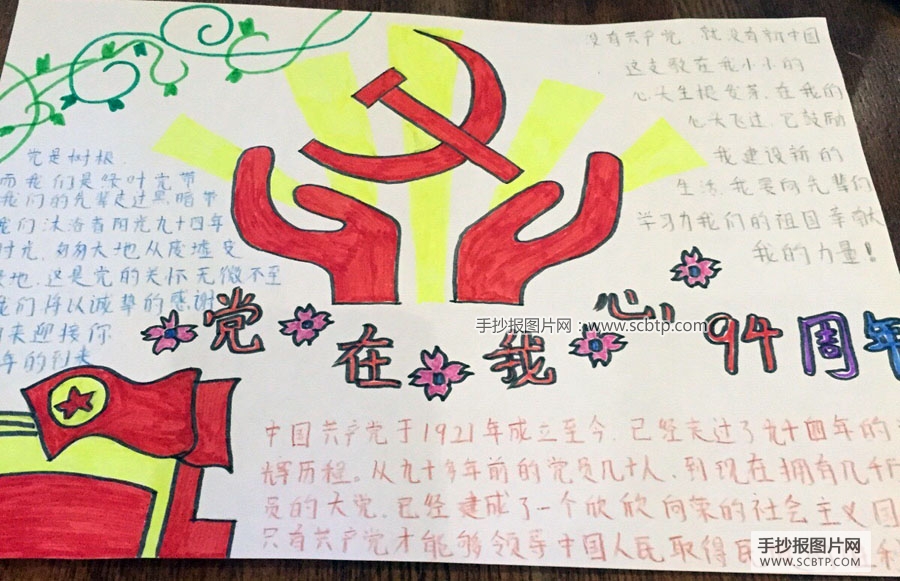 没有共产党,就没有新中国
这支歌在我小小的
心头生根发芽.在我的
心头飞过.它鼓励
我建设新的
生活.我要向先辈们
学习为我们的祖国奉献
我的力量!
党是树根.
而我们是绿叶党带
我们的先辈走过黑暗带
我们沐浴着阳光九十四年
时光.匆匆大地从废墟变
地.这是党的关怀无微不至
我们将以诚挚的感谢
来迎接你
年的到来
党在我心,94周年
手抄报图片网:www.scbtp.com
中国共产党于1921年成立至今.已经走过了九十四年的
辉历程.从九十多年前的党员几十人.到现在拥有几千
员的大党.已经建成了一个欣欣向荣的社会主义国
只有共产党才能够领导中国人民取得
手抄报图片网
WWW.SCBTP.COM